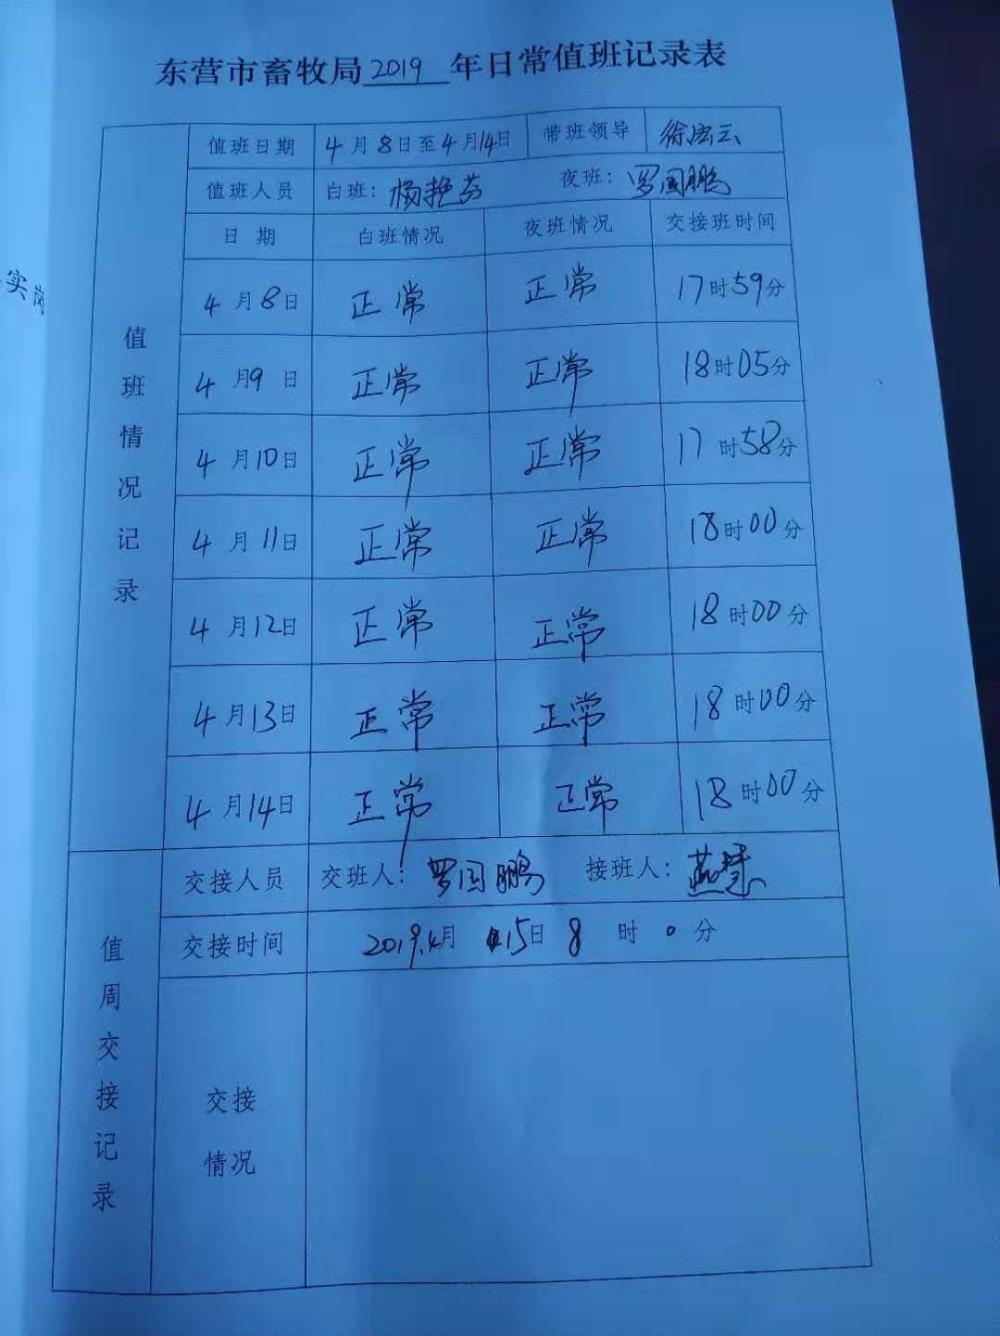 东营市畜牧局2019年日常值班记录表
值班日期 4月8日至4月14日 带班领导 徐宏云
值班人员 白班：杨艳芬 夜班：罗国鹏
日期 白班情况 夜班情况 交接班时间
4月8日 正常 正常 17时59分
4月9日 正常 正常 18时05分
4月10日 正常 正常 17时58分
4月11日 正常 正常 18时00分
4月12日 正常 正常 18时00分
4月13日 正常 正常 18时00分
4月14日 正常 正常 18时00分
值班情况记录
交接人员 交班人：罗国鹏 接班人：燕慧
交接时间 2019.4月15日8时0分
交接情况
值周交接记录
实岗